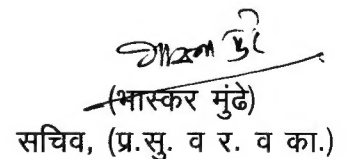 (भास्कर मुंढे)
सचिव, (प्र.सु. व र. व का.)